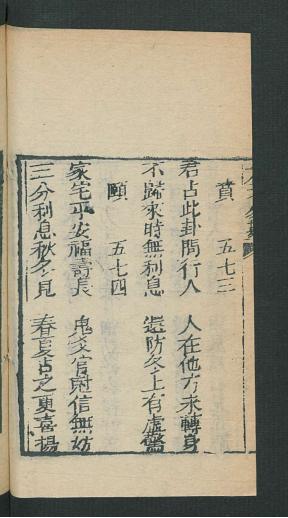 賁 五七三
君占此卦問行人 人在他方未轉身
不歸來時無利息 還防冬上有虛驚
頤 五七四
家宅平安福壽長 鬼爻官信無妨
三分利息秋冬見 春夏占之更喜揚